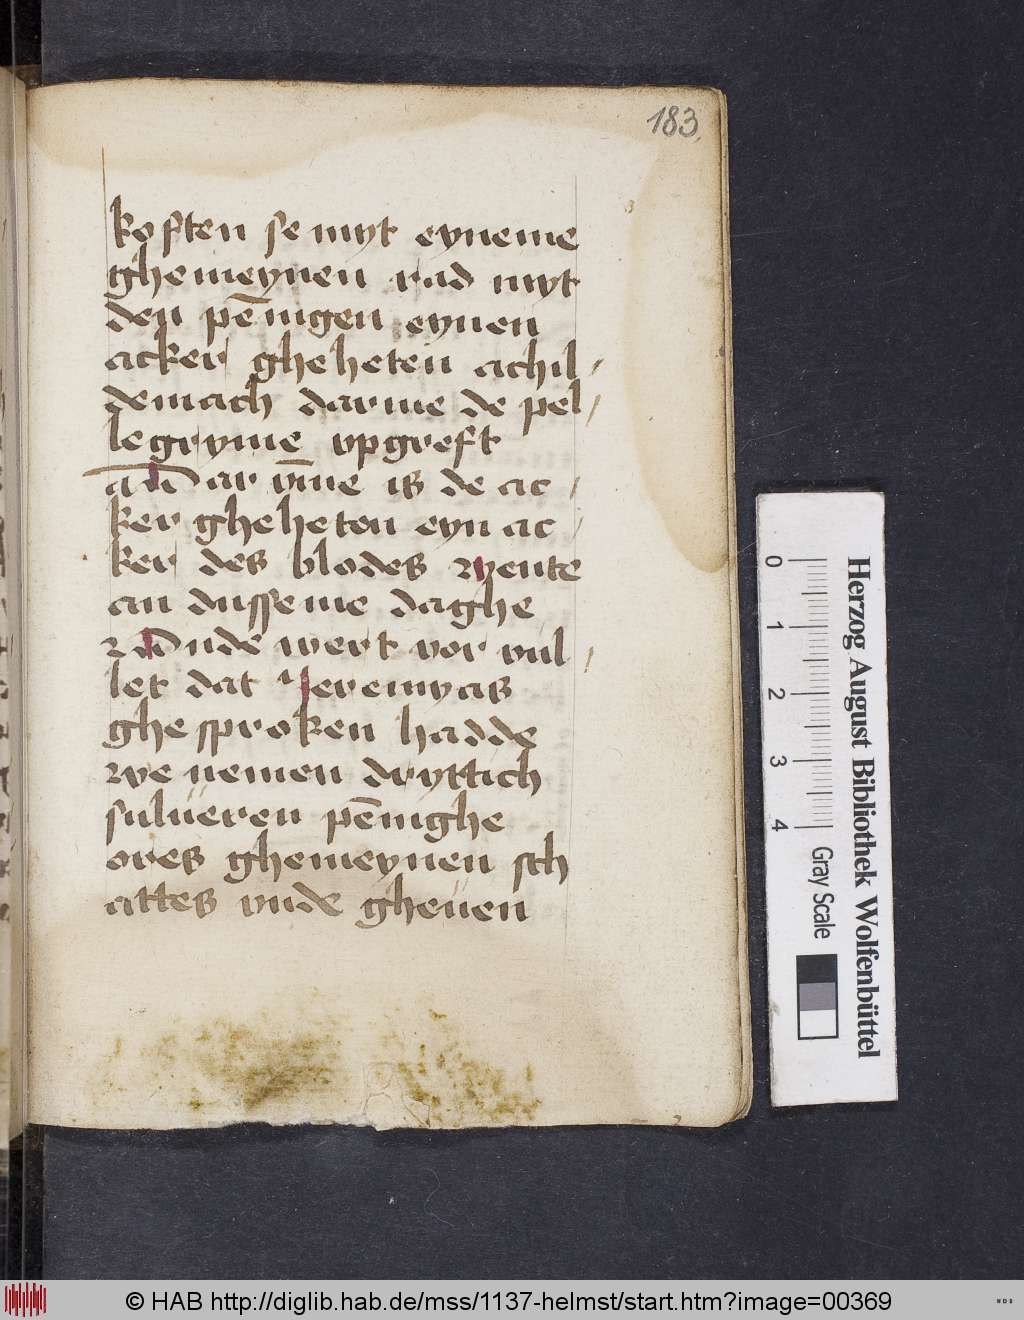 183
koften se myt eyneme
ghemeynen rad myt
den pēnigen eynen
acker gheheten achil-
demach darme de pel-
legryme vpgreft
ar v̄me is de ac-
ker gheheten eyn ac-
ker des blodes wente
an dusseme daghe
nde wert vor vul-
let dat Jeremyas
ghesproken hadde
we nemen dryttich
sulueren pēnighe
ores ghemeynen sch
attes vnde gheuen
0 1 2 3 4
Gray Scale
Herzog August Bibliothek Wolfenbüttel
© HAB http://diglib.hab.de/mss/1137-helmst/start.htm?image=00369